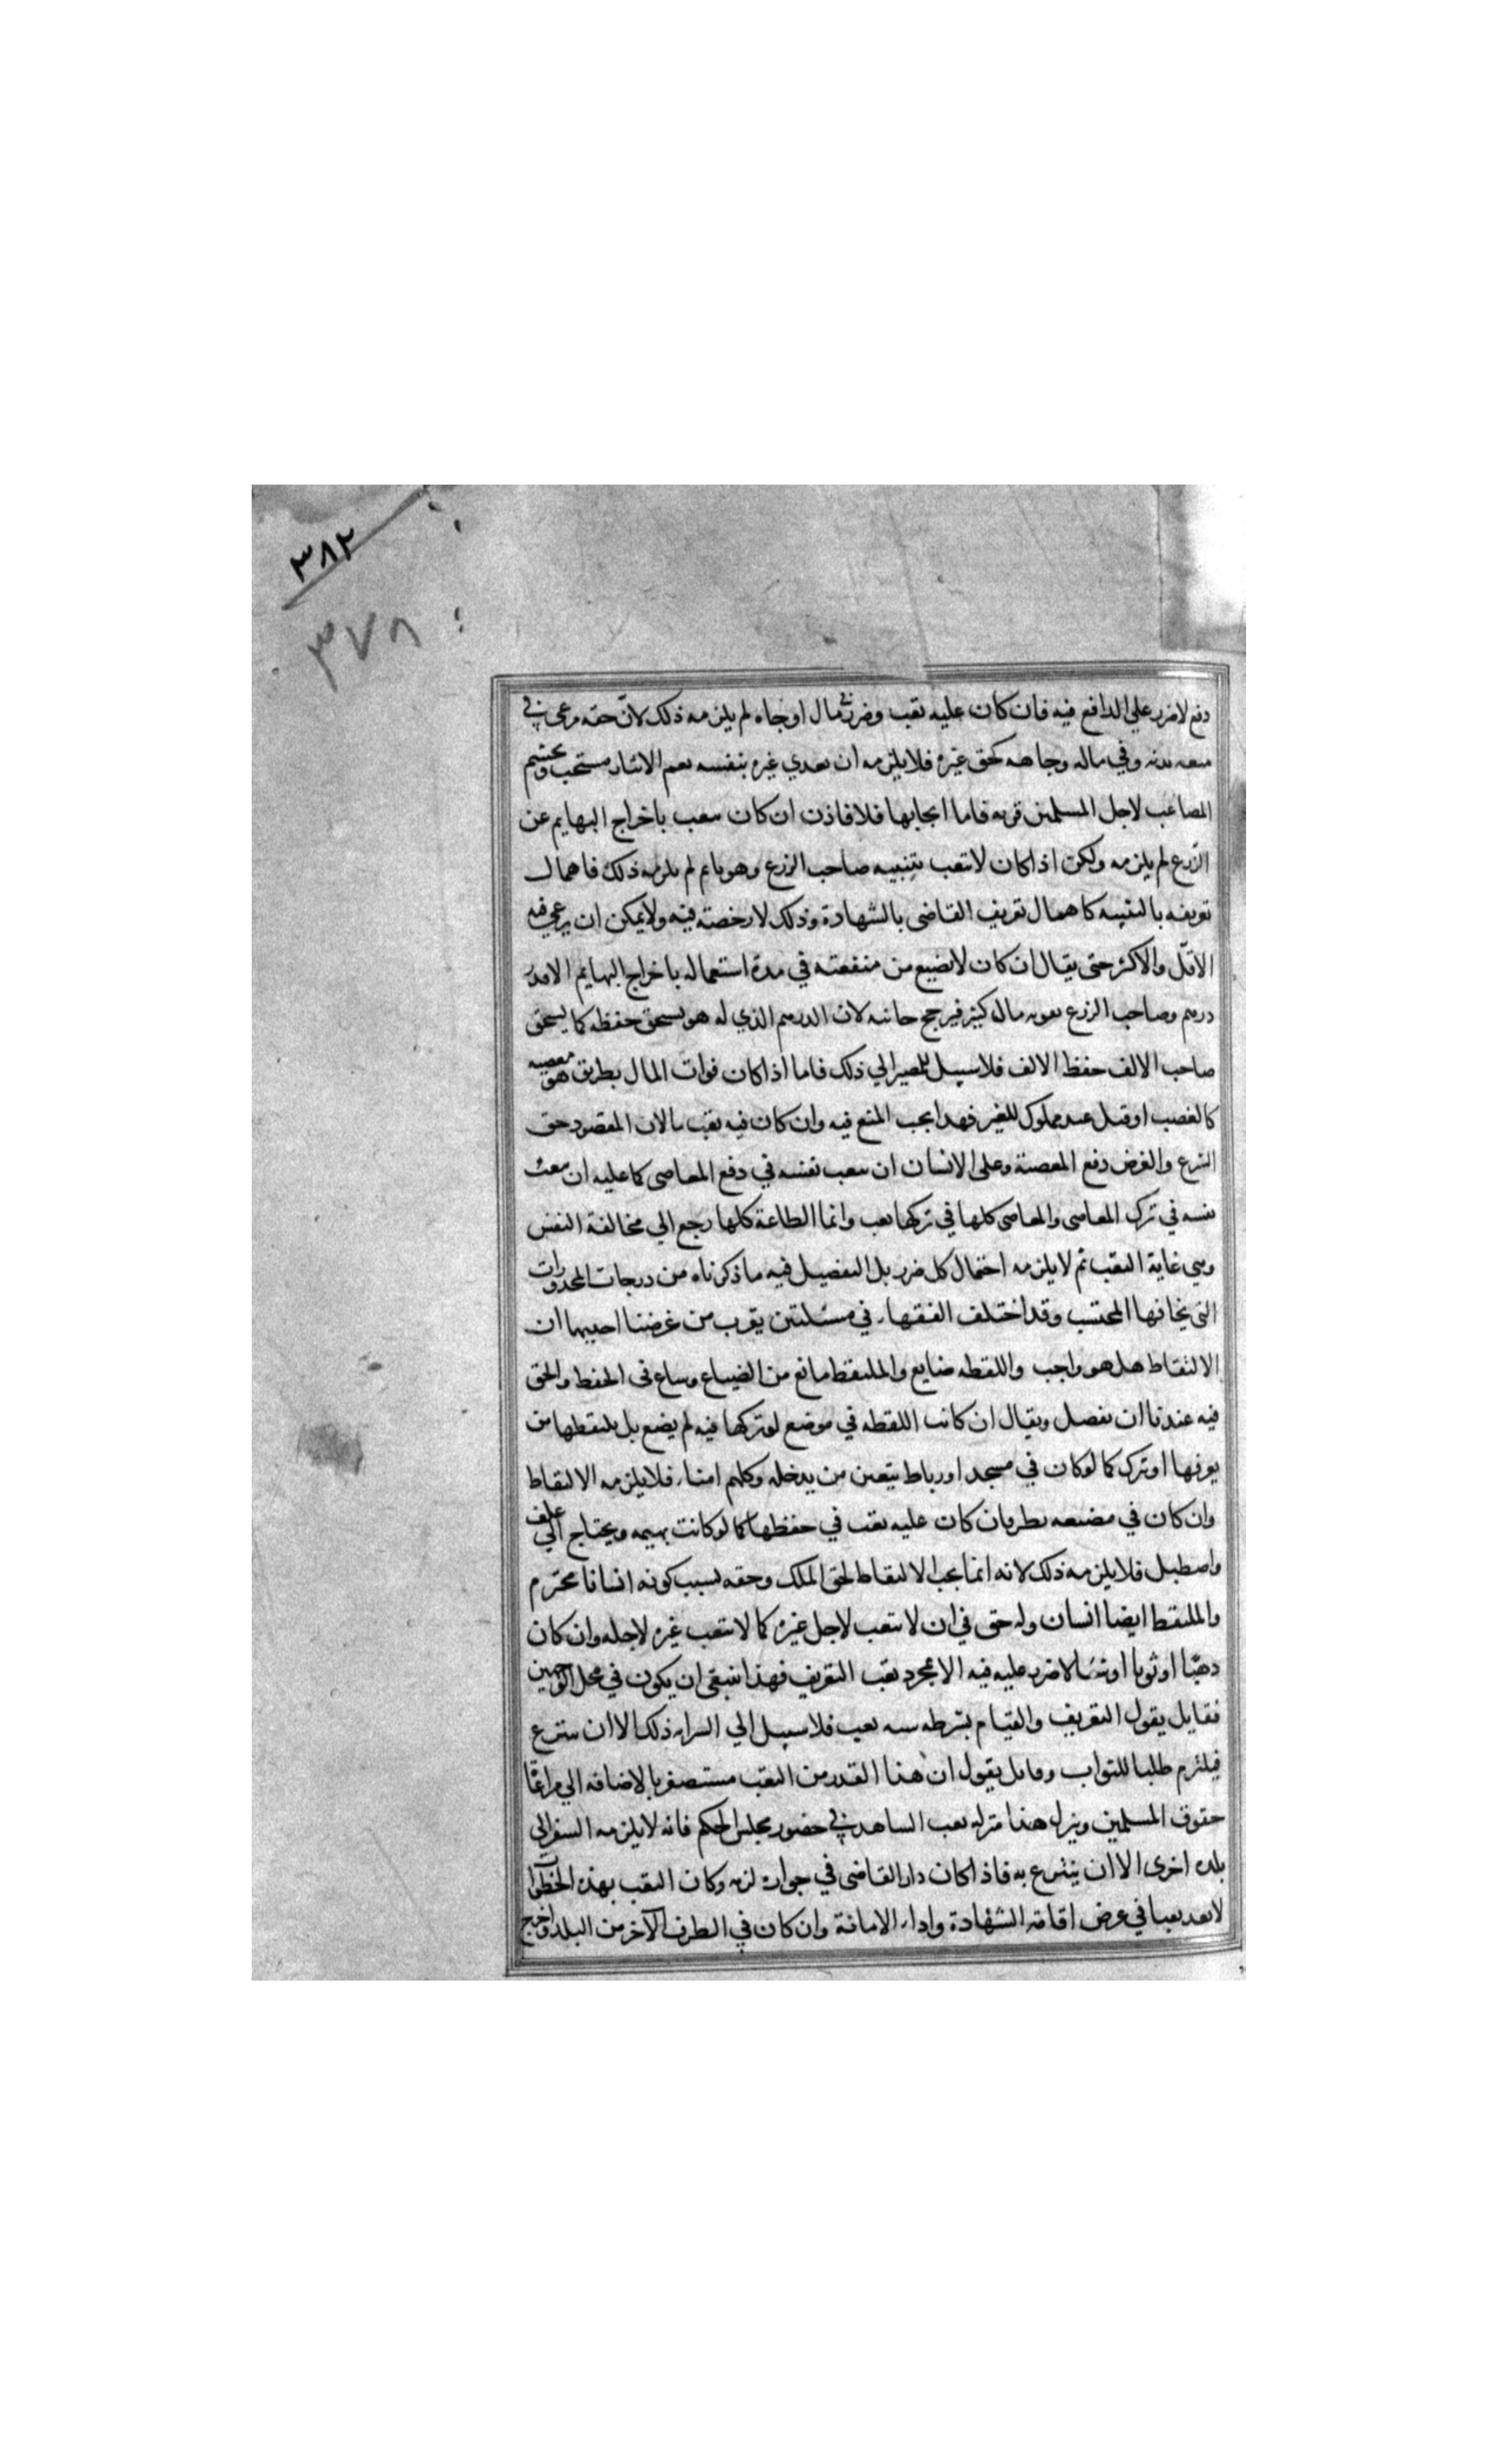 ٣٨٢
٣٧٨
دفع لاضرر علي الدافع فيه فان كان عليه تعب وضرر في مال او جاه لم يلزمه ذلك لانّ حقه مرعي في
منفعه بدنه وفي ماله وجاهه كحق غيره فلا يلزمه ان يفدي غيره بنفسه نعم الايثار مستحب وتجشم
المصاعب لاجل المسلمين قربه فاما ايجابها فلا فاذن ان كان يتعب باخراج البهايم عن
الزّرع لم يلزمه ولكن اذا كان لا تعب بتنبيه صاحب الزرع وهو نايم لم يلزمه ذلك فاهمال
تعريفه بالتنبيه كاهمال تعريف القاضى بالشهادة وذلك لا رخصته فيه ولا يمكن ان يرعي فيه
الاقلّ والاكثر حتى يقال ان كان لا يضيع من منفعته في مدة استعماله باخراج البهايم الا قدر
درهم وصاحب الزرع يفوته مال كثير فيرجح جانبه لان الدرهم الذي له هو يستحق حفظه كما يستحق
صاحب الالف حفظ الالف فلا سبيل للمصير الي ذلك فاما اذا كان فوات المال بطريق هو معصيه
كالغصب او قتل عبد مملوك للغير فهذا يجب المنع فيه وان كان فيه تعب ما لان المقصود حق
الشرع والغرض دفع المعصية وعلى الانسان ان يتعب نفسه في دفع المعاصى كما عليه ان يتعب
نفسه في ترك المعاصى والمعاصى كلها في تركها تعب وانما الطاعة كلها رجع الي مخالفة النفس
وهي غاية التعب ثم لا يلزمه احتمال كل ضرر بل التفصيل فيه ما ذكرناه من درجات المحذورات
التى يخافها المحتسب وقد اختلف الفقهاء في مسئلتين يقرب من غرضنا احديهما ان
الالتقاط هل هو واجب واللقطه ضايع والملتقط مانع من الضياع وساع فى الحفظ والحق
فيه عندنا ان نفصل ويقال ان كانت اللقطه في موضع لو تركها فيه لم يضع بل يلتقطها من
يعرفها او ترك كما لو كان في مسجد او رباط يتعين من يدخله وكلهم امناء فلا يلزمه الالتقاط
وان كان في مضيعه نظر فان كان عليه تعب في حفظها كما لو كانت بهيمه ويحتاج الي علف
واصطبل فلا يلزمه ذلك لانه انما يجب الالتقاط لحق الملك وحقه بسبب كونه انسانا محترم
والملتقط ايضا انسان وله حق في ان لا يتعب لاجل غيره كما لا يتعب غيره لاجله وان كان
ذهبًا او ثوبا او شيئا لا ضرر عليه فيه الا بمجرد تعب التعريف فهذا ينبغى ان يكون في محل الوجهين
فقايل يقول التعريف والقيام بشرطه فيه تعب فلا سبيل الي الزامه ذلك الا ان يتبرع
فيلتزم طلبا للثواب وقايل يقول ان هذا القدر من التعب مستصغر بالاضافه الي مراعاة
حقوق المسلمين وينزل هذا منزله تعب الشاهد في حضور مجلس الحكم فانه لا يلزمه السفر الى
بلده اخرى الا ان يتبرع به فاذا كان دار القاضى في جواره لزمه وكان التعب بهذه الخطوات
لا يعد تعبا في عرض اقامة الشهادة واداء الامانة وان كان في الطرف الآخر من البلد واخرج